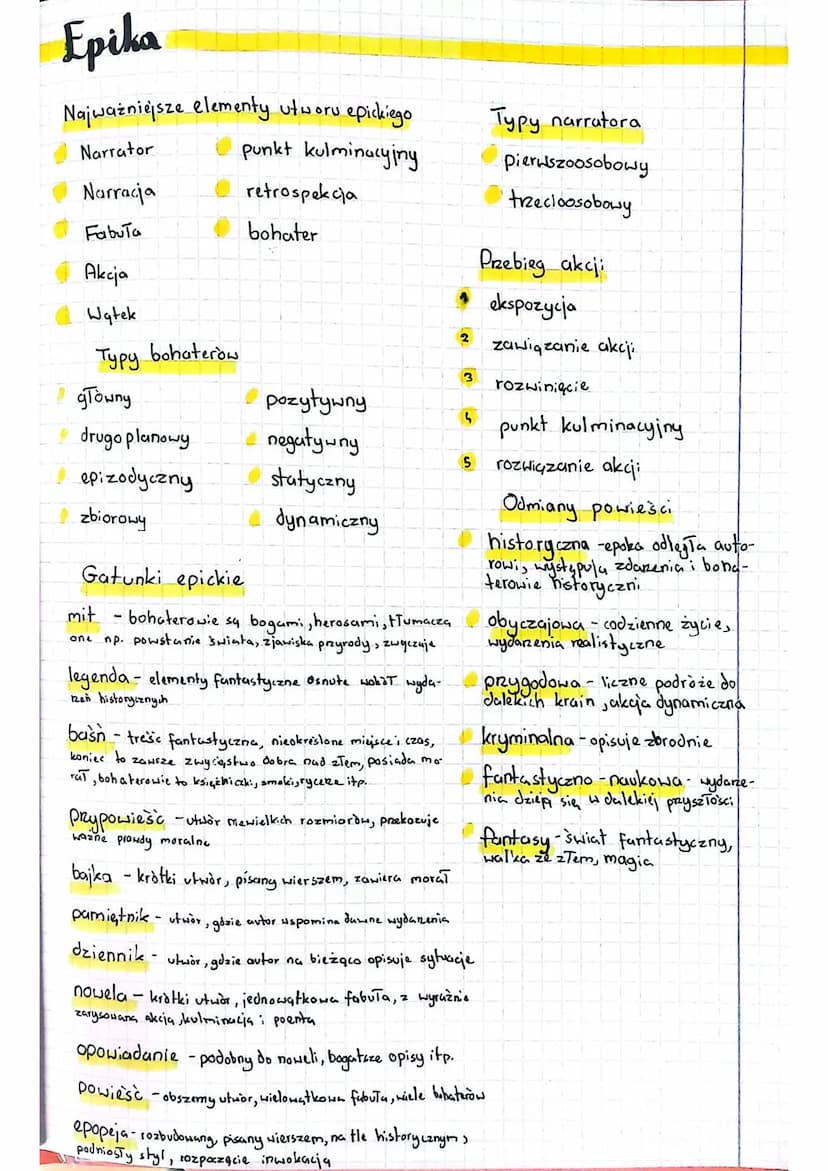 Epika
Najważniejsze elementy utworu epickiego
Narrator
Narracja
Fabuła
Akcja
Wątek
punkt kulminacyjny
retrospekcja
bohater
Typy bohaterów
główny
drugoplanowy
epizodyczny
zbiorowy
pozytywny
negatywny
statyczny
dynamiczny
Gatunki epickie
mit - bohaterowie są bogami, herosami, tłumaczą
one np. powstanie świata, zjawiska przyrody, zwyczaje
legenda - elementy fantastyczne osnute wokół wyda-
rzeń historycznych
baśń - treść fantastyczna, nieokreślone miejsce i czas,
koniec to zawsze zwycięstwo dobra nad złem, posiada mo-
rał, bohaterowie to księżniczki, smoki, rycerze itp.
przypowieść - utwór niewielkich rozmiarów, przekazuje
ważne prawdy moralne
bajka - krótki utwór, pisany wierszem, zawiera morał
pamiętnik - utwór, gdzie autor wspomina dawne wydarzenia
dziennik - utwór, gdzie autor na bieżąco opisuje sytuacje
nowela - krótki utwór, jednowątkowa fabuła, z wyraźnie
zarysowaną akcją, kulminacją i poentą
opowiadanie - podobny do noweli, bogatsze opisy itp.
powieść - obszerny utwór, wielowątkowa fabuła, wiele bohaterów
epopeja - rozbudowany, pisany wierszem, na tle historycznym,
podniosły styl, rozpoczęcie inwokacją
Typy narratora
pierwszoosobowy
trzecioosobowy
Przebieg akcji
1 ekspozycja
2 zawiązanie akcji
3 rozwinięcie
4 punkt kulminacyjny
5 rozwiązanie akcji
Odmiany powieści
historyczna - epoka odległa auto-
rowi, występują zdarzenia i boha-
terowie historyczni
obyczajowa - codzienne życie,
wydarzenia realistyczne
przygodowa - liczne podróże do
dalekich krain, akcja dynamiczna
kryminalna - opisuje zbrodnie
fantastyczno-naukowa - wydarze-
nia dzieją się w dalekiej przyszłości
fantasy - świat fantastyczny,
walka ze złem, magia